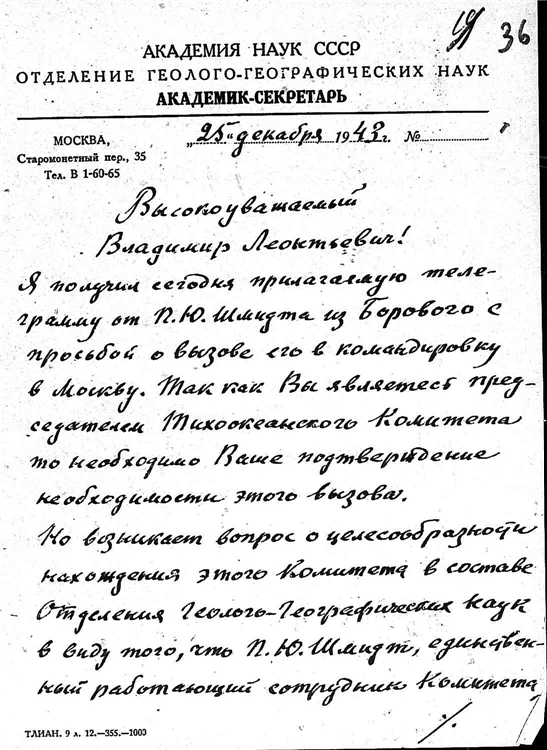 19 36
АКАДЕМИЯ НАУК СССР
ОТДЕЛЕНИЕ ГЕОЛОГО-ГЕОГРАФИЧЕСКИХ НАУК
АКАДЕМИК-СЕКРЕТАРЬ
МОСКВА,
Старомонетный пер., 35
Тел. В 1-60-65
„25“ декабря 1943 г. №
Высокоуважаемый
Владимир Леонтьевич!
Я получил сегодня прилагаемую теле-
грамму от П.Ю. Шмидта из Борового с
просьбой о вызове его в командировку
в Москву. Так как Вы являетесь пред-
седателем Тихоокеанского Комитета
то необходимо Ваше подтверждение
необходимости этого вызова.
Но возникает вопрос о целесообразности
нахождения этого Комитета в составе
Отделения Геолого-Географических наук
в виду того, что П.Ю. Шмидт, единствен-
ный работающий сотрудник Комитета
·/.
ТЛИАН. 9 л. 12.—355.—1000